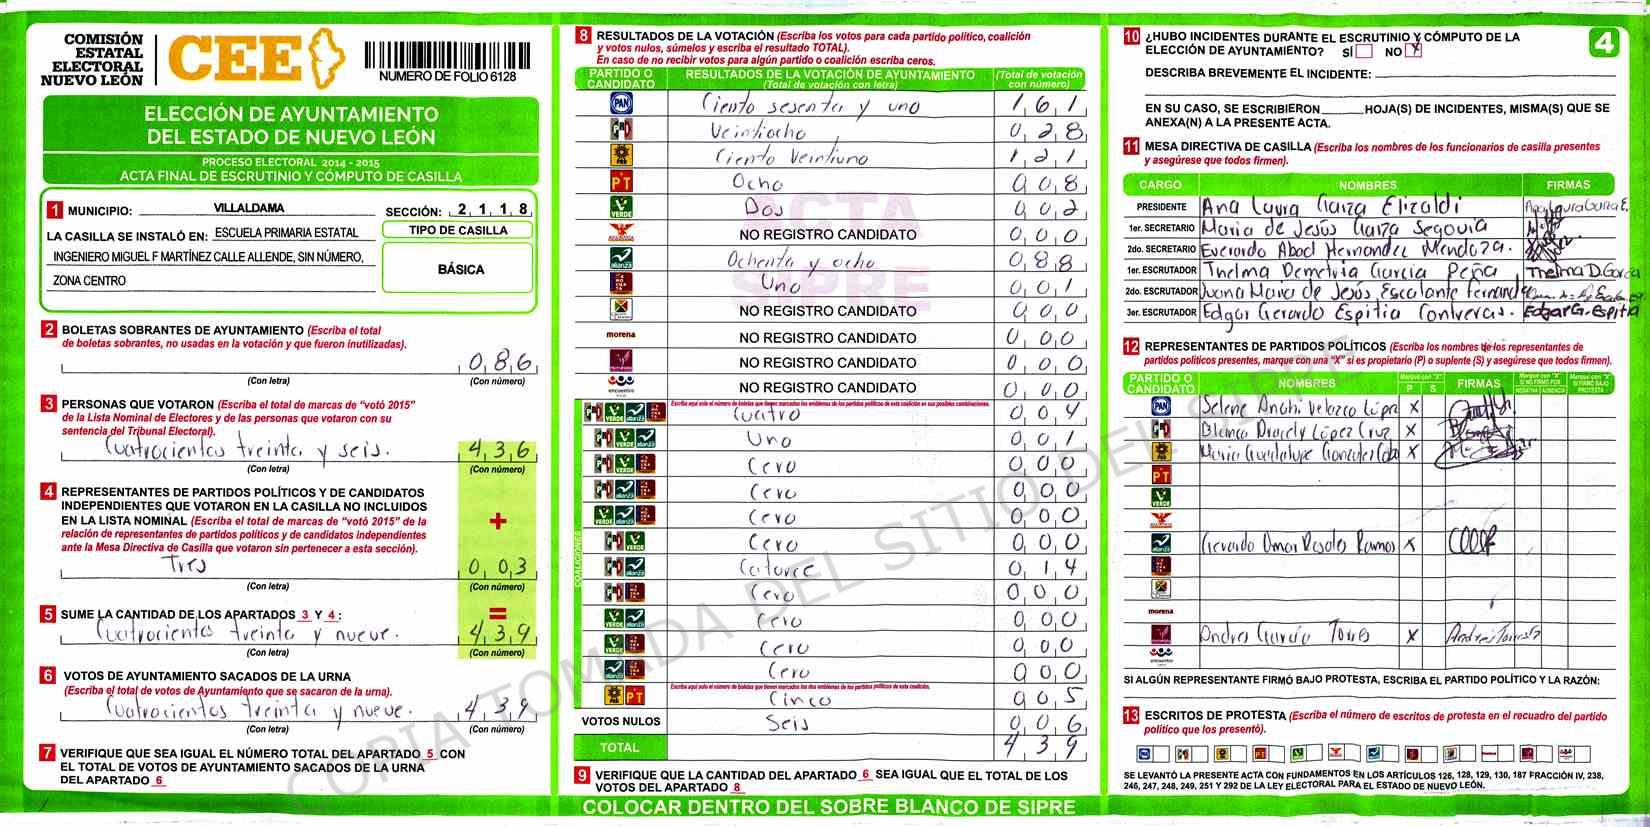 COMISIÓN
ESTATAL
ELECTORAL
NUEVO LEÓN
CEE
NUMERO DE FOLIO 6128
ELECCIÓN DE AYUNTAMIENTO
DEL ESTADO DE NUEVO LEÓN
PROCESO ELECTORAL 2014 - 2015
ACTA FINAL DE ESCRUTINIO Y CÓMPUTO DE CASILLA
1 MUNICIPIO: VILLALDAMA SECCIÓN: 2 1 1 8
LA CASILLA SE INSTALÓ EN: ESCUELA PRIMARIA ESTATAL
INGENIERO MIGUEL F MARTÍNEZ CALLE ALLENDE, SIN NÚMERO,
ZONA CENTRO
TIPO DE CASILLA
BÁSICA
2 BOLETAS SOBRANTES DE AYUNTAMIENTO (Escriba el total
de boletas sobrantes, no usadas en la votación y que fueron inutilizadas).
0 8 6
(Con letra) (Con número)
3 PERSONAS QUE VOTARON (Escriba el total de marcas de "votó 2015"
de la Lista Nominal de Electores y de las personas que votaron con su
sentencia del Tribunal Electoral).
Cuatrocientos treinta y seis. 4 3 6
(Con letra) (Con número)
4 REPRESENTANTES DE PARTIDOS POLÍTICOS Y DE CANDIDATOS
INDEPENDIENTES QUE VOTARON EN LA CASILLA NO INCLUIDOS
EN LA LISTA NOMINAL (Escriba el total de marcas de "votó 2015" de la
relación de representantes de partidos políticos y de candidatos independientes
ante la Mesa Directiva de Casilla que votaron sin pertenecer a esta sección).
+
Tres 0 0 3
(Con letra) (Con número)
5 SUME LA CANTIDAD DE LOS APARTADOS 3 Y 4 : =
Cuatrocientos treinta y nueve. 4 3 9
(Con letra) (Con número)
6 VOTOS DE AYUNTAMIENTO SACADOS DE LA URNA
(Escriba el total de votos de Ayuntamiento que se sacaron de la urna).
Cuatrocientos treinta y nueve. 4 3 9
(Con letra) (Con número)
7 VERIFIQUE QUE SEA IGUAL EL NÚMERO TOTAL DEL APARTADO 5 CON
EL TOTAL DE VOTOS DE AYUNTAMIENTO SACADOS DE LA URNA
DEL APARTADO 6
8 RESULTADOS DE LA VOTACIÓN (Escriba los votos para cada partido político, coalición
y votos nulos, súmelos y escriba el resultado TOTAL).
En caso de no recibir votos para algún partido o coalición escriba ceros.
PARTIDO O CANDIDATO RESULTADOS DE LA VOTACIÓN DE AYUNTAMIENTO (Total de votación con letra) (Total de votación con número)
PAN Ciento sesenta y uno 1 6 1
PRD Veintiocho 0 2 8
PRD Ciento Veintiuno 1 2 1
PT Ocho 0 0 8
VERDE Dos 0 0 2
NO REGISTRO CANDIDATO 0 0 0
alianza Ochenta y ocho 0 8 8
Uno 0 0 1
NO REGISTRO CANDIDATO 0 0 0
morena NO REGISTRO CANDIDATO 0 0 0
NO REGISTRO CANDIDATO 0 0 0
encuentro NO REGISTRO CANDIDATO 0 0 0
ACTA
SIPRE
COALICIONES
Escriba aquí solo el número de boletas que tienen marcados los emblemas de los partidos políticos de esta coalición en sus posibles combinaciones.
Cuatro 0 0 4
Uno 0 0 1
Cero 0 0 0
Cero 0 0 0
Cero 0 0 0
Cero 0 0 0
Catorce 0 1 4
Cero 0 0 0
Cero 0 0 0
Cero 0 0 0
Cero 0 0 0
Escriba aquí solo el número de boletas que tienen marcados los dos emblemas de los partidos políticos de esta coalición.
Cinco 0 0 5
VOTOS NULOS Seis 0 0 6
TOTAL 4 3 9
9 VERIFIQUE QUE LA CANTIDAD DEL APARTADO 6 SEA IGUAL QUE EL TOTAL DE LOS
VOTOS DEL APARTADO 8
COLOCAR DENTRO DEL SOBRE BLANCO DE SIPRE
10 ¿HUBO INCIDENTES DURANTE EL ESCRUTINIO Y CÓMPUTO DE LA
ELECCIÓN DE AYUNTAMIENTO? SÍ NO X
4
DESCRIBA BREVEMENTE EL INCIDENTE:
EN SU CASO, SE ESCRIBIERON HOJA(S) DE INCIDENTES, MISMA(S) QUE SE
ANEXA(N) A LA PRESENTE ACTA.
11 MESA DIRECTIVA DE CASILLA (Escriba los nombres de los funcionarios de casilla presentes
y asegúrese que todos firmen).
CARGO NOMBRES FIRMAS
PRESIDENTE Ana Laura Garza Elizaldi Ana Laura Garza E.
1er. SECRETARIO Maria de Jesús Garza Segovia
2do. SECRETARIO Everardo Abad Hernandez Mendoza.
1er. ESCRUTADOR Thelma Demetria Garcia Peña Thelma D. Garcia
2do. ESCRUTADOR Juana Maria de Jesús Escalante Fernandez
3er. ESCRUTADOR Edgar Gerardo Espitia Contreras. Edgar G. Espitia
12 REPRESENTANTES DE PARTIDOS POLÍTICOS (Escriba los nombres de los representantes de
partidos políticos presentes, marque con una "X" si es propietario (P) o suplente (S) y asegúrese que todos firmen).
PARTIDO O CANDIDATO NOMBRES Marque con "X" P S FIRMAS Marque con "X" SI NO FIRMÓ POR NEGATIVA AUSENCIA Marque con "X" SI FIRMÓ BAJO PROTESTA
PAN Selene Anahi Velazco López X
Blanca Aracely López Cruz X
PRD Maria Guadalupe Gonzalez X
PT
VERDE
alianza Gerardo Omar Rosales Ramos X
morena
Andres García Torres X
encuentro
SI ALGÚN REPRESENTANTE FIRMÓ BAJO PROTESTA, ESCRIBA EL PARTIDO POLÍTICO Y LA RAZÓN:
13 ESCRITOS DE PROTESTA (Escriba el número de escritos de protesta en el recuadro del partido
político que los presentó).
SE LEVANTÓ LA PRESENTE ACTA CON FUNDAMENTOS EN LOS ARTÍCULOS 126, 128, 129, 130, 187 FRACCIÓN IV, 238,
246, 247, 248, 249, 251 Y 292 DE LA LEY ELECTORAL PARA EL ESTADO DE NUEVO LEÓN.
COPIA TOMADA DEL SITIO DEL SIPRE